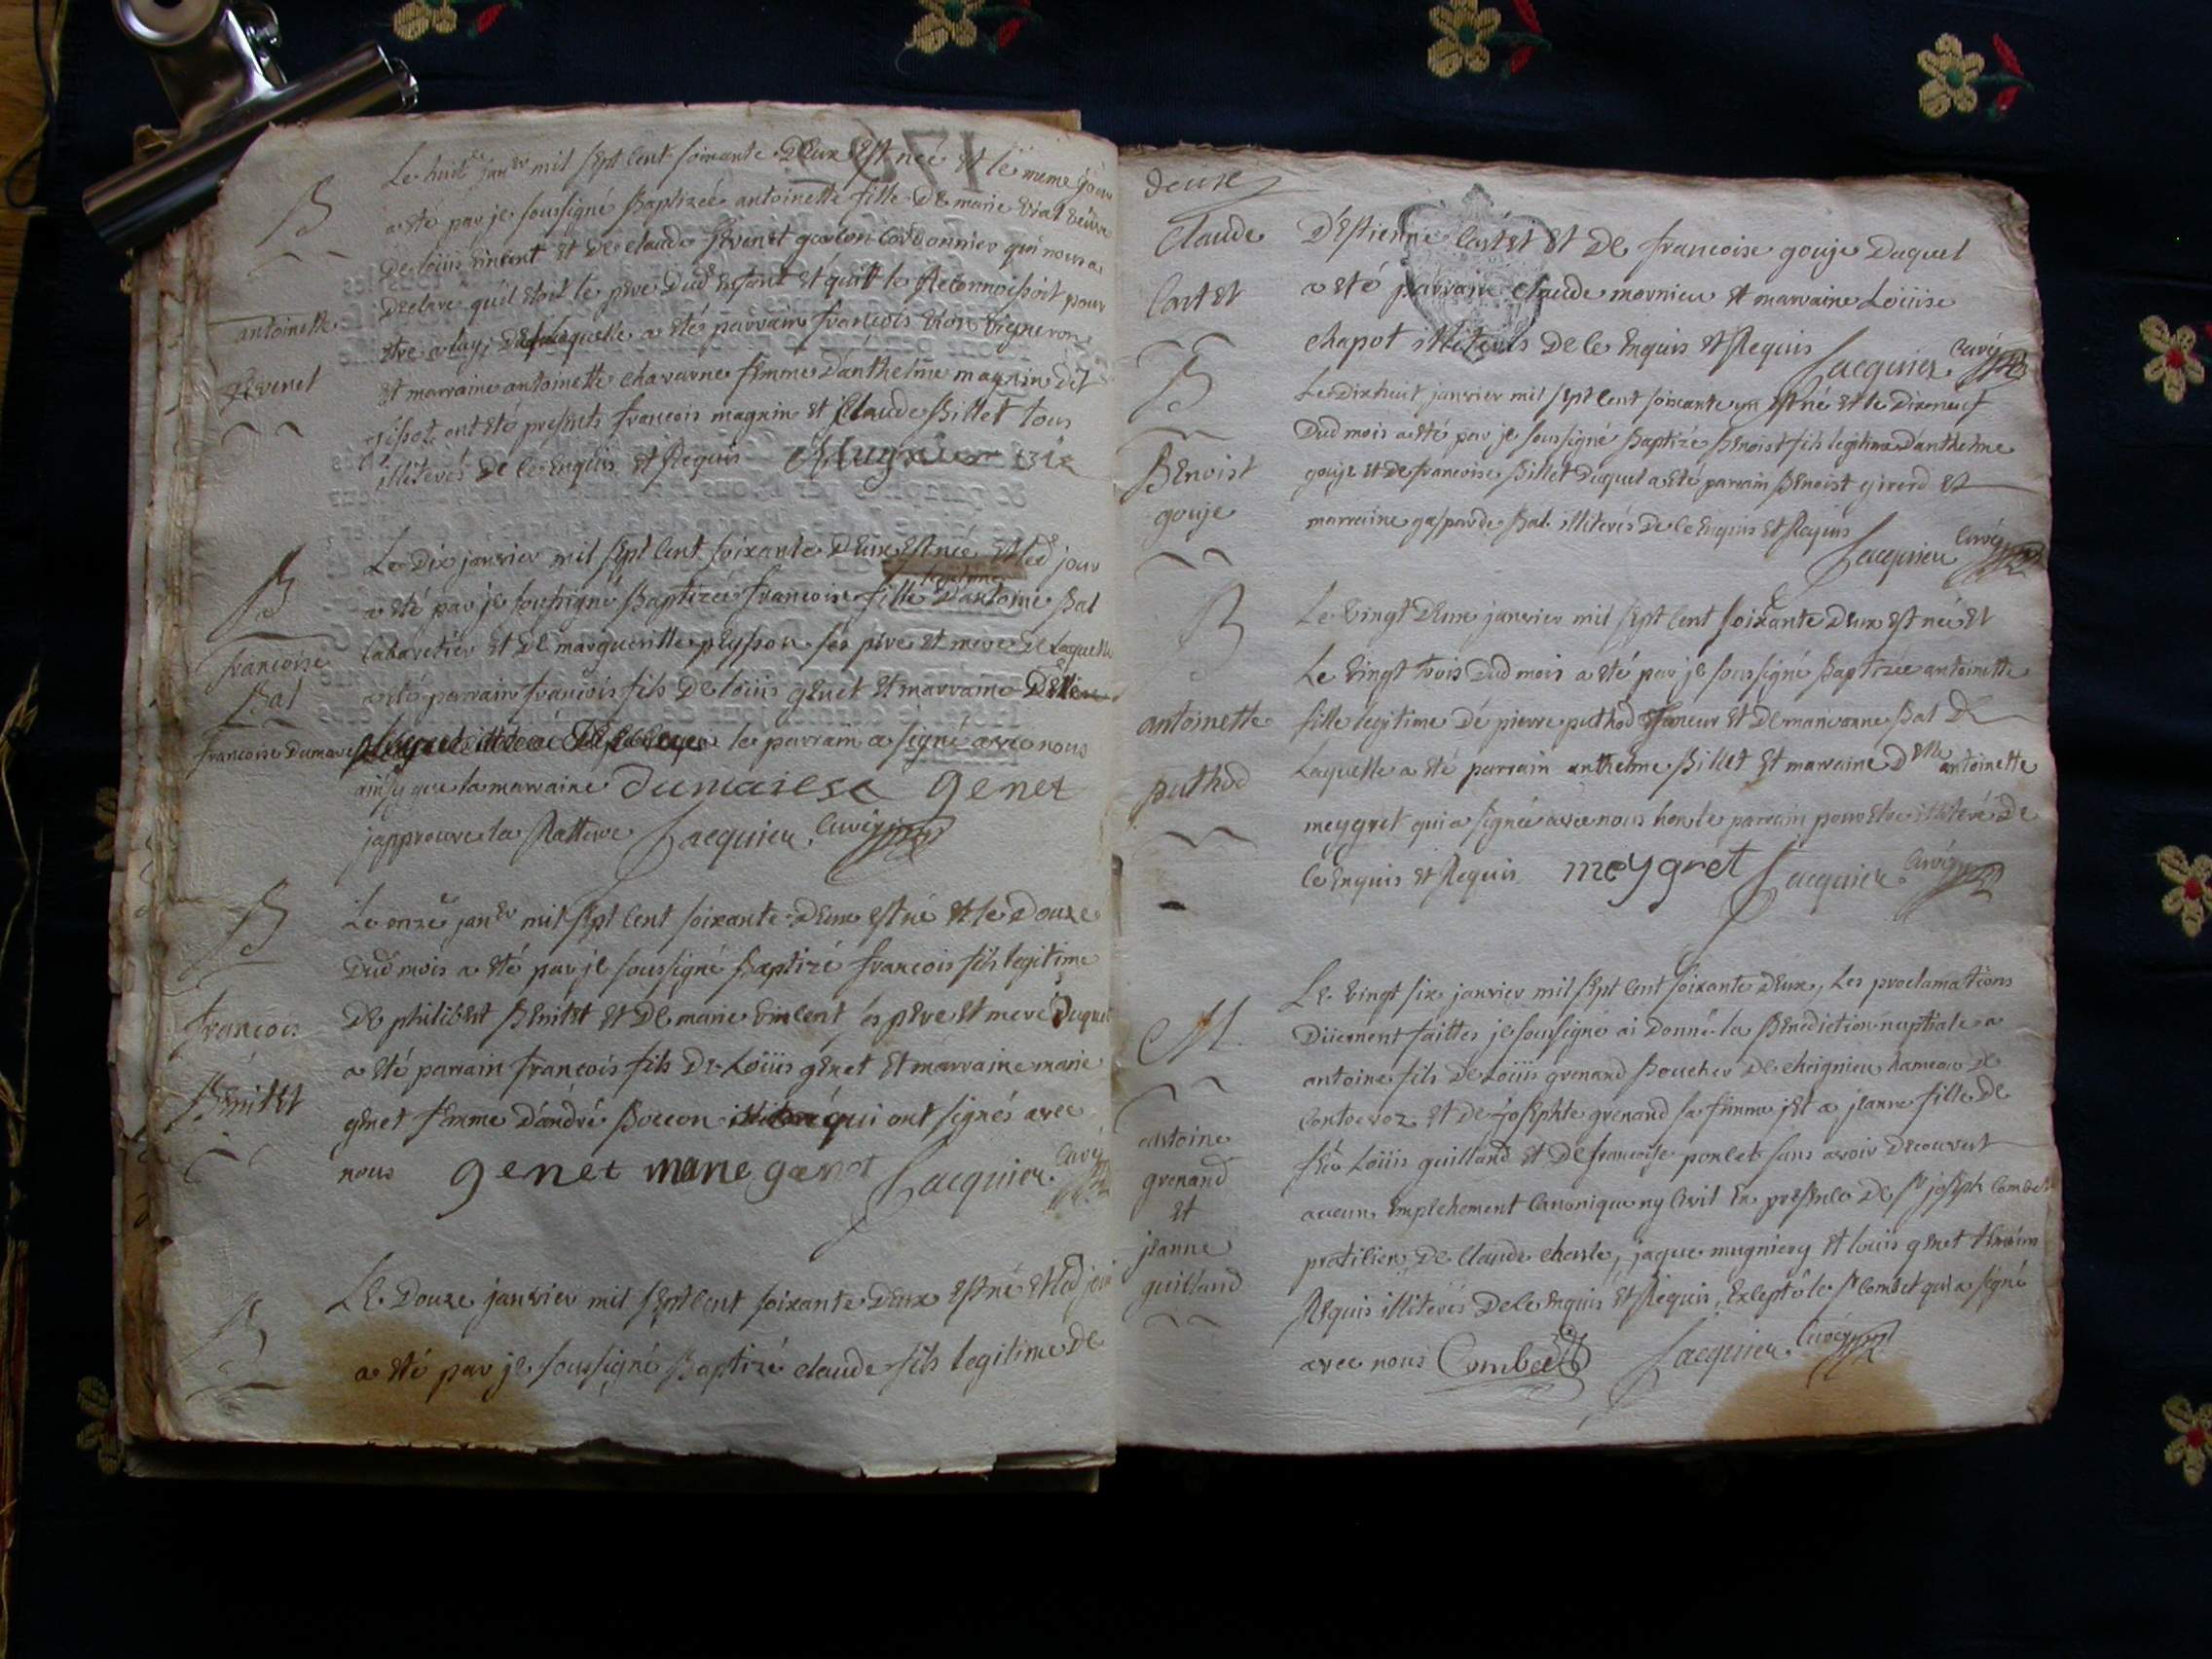 Le huit janer mil sept cent soixante Deux est neé et le meme jour
a eté par je soussigné Baptizeé antoinette fille De marie Vial veuve
De loüis vincent et De claude Jevenet garcon cordonnier qui nous a
Declare qu'il etoit le pere Dud enfant et qu'ill le Reconnoissoit pour
etre a luy, De laquelle a etés parrain françois vigneron
et marraine antoinette chavanne femme D'anthelme magnin Dit
ont eté presents francois magnin et Claude Billet tous
illiterés De ce enquis et Requis
B
antoinette
Jevenet
Le Dix janvier mil sept cent soixante Deux est neé et led jour
a eté par je soussigné Baptizeé francoise fille legitime D'antoine Bal
cabaretier et De margueritte plysson ses pere et mere De laquelle
a eté parrain francois fils De loüis genet et marraine Delle
francoise Dumarest le parrain a signé avec nous
ainsy que la marraine Dumarest genet
japprouve la Rature Jacquier Curé
B
francoise
Bal
Le onze janer mil sept cent soixante Deux est né et le Douze
Dud mois a eté par je soussigné Baptizé francois fils legitime
De philibert Benitet et De marie Vincent ses pere et mere Duquel
a eté parrain francois fils De Loüis genet et marraine marie
genet femme D'andré Boccon qui ont signés avec
nous genet marie genet Jacquier Curé
B
francois
Benitet
Le Douze janvier mil sept cent soixante Deux est né et led jour
a eté par je soussigné Baptizé claude fils legitime De
B
Deuxe
D'Estienne Cartet et De francoise gouje Duquel
a eté parrain claude mornieu et marraine Loüise
chapot illiterés De ce enquis et Requis Jacquier Curé
Claude
Cartet
Le Dixhuit janvier mil sept cent soixante un est né et le Dixneuf
Dud mois a eté par je soussigné Baptizé Benoist fils legitime D'anthelme
gouje et De francoise Billet Duquel a eté parrain Benoist girerd et
marraine gasparde Bal illiterés De ce enquis et Requis Jacquier Curé
B
Benoist
gouje
Le vingt Deux janvier mil sept cent soixante Deux est neé et
Le vingt trois Dud mois a eté par je soussigné Baptizeé antoinette
fille legitime De pierre puthod et De marianne Bal De
Laquelle a eté parrain anthelme Billet et marraine Delle antoinette
meygret qui a signeé avec nous non le parrain pour etre illiteré De
ce enquis et Requis meygret Jacquier Curé
B
antoinette
puthod
Le vingt six janvier mil sept cent soixante Deux, Les proclamations
Düement faittes je soussigné ai Donné la Benediction nuptiale a
antoine fils De Loüis grenand Boucher De cheignieu hameau De
Contrevoz et De josephte grenand sa femme, et a jeanne fille De
feu Loüis guilland et De francoise poncet sans avoir Decouvert
aucun empechement Canonique ny Civil En presence De Sr joseph Combet
praticien, De Claude charle, jaque mugniery et louis genet témoins
Requis illiterés De ce enquis et Requis, Excepté le Sr Combet qui a signé
avec nous Combet Jacquier Curé
M
antoine
grenand
et
jeanne
guilland